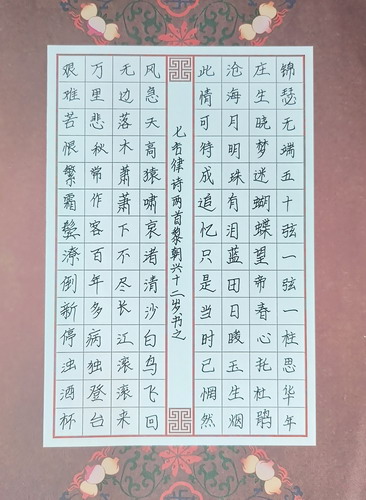 锦瑟无端五十弦一弦一柱思华年
庄生晓梦迷蝴蝶望帝春心托杜鹃
沧海月明珠有泪蓝田日暖玉生烟
此情可待成追忆只是当时已惘然
七言律诗两首黎朝兴十二岁书之
风急天高猿啸哀渚清沙白鸟飞回
无边落木萧萧下不尽长江滚滚来
万里悲秋常作客百年多病独登台
艰难苦恨繁霜鬓潦倒新停浊酒杯